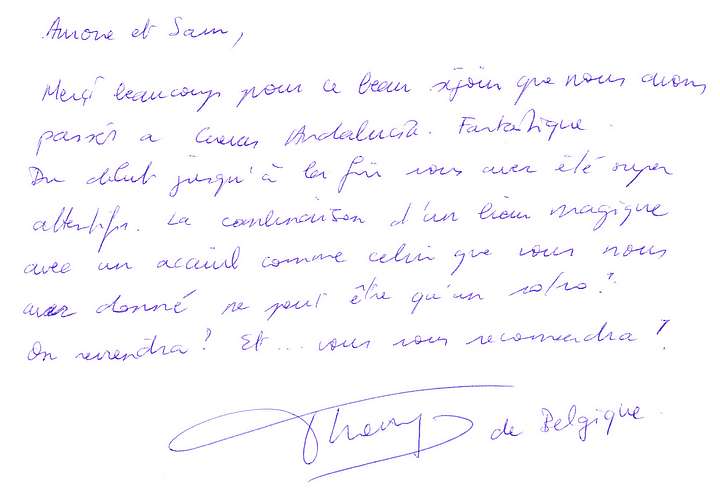 et Sam,
Merçi beaucoup pour ce beau séjour que nous avons
passés a Cuevas Andalucia. Fantastique.
Du début jusqu'à la fin vous avez été super
attentifs. La combinaison d'un lieu magique
avec un acceuil comme celui que vous nous
avez donné ne peut être qu'un
On reviendra! Et... vous recomendra!
de Belgique